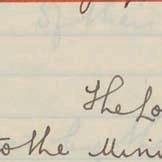 The Lo
to the Mini